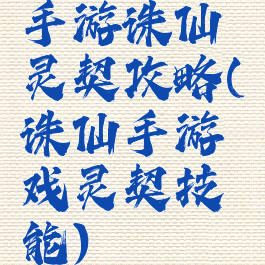 手游诛仙
灵契攻略(
诛仙手游
戏灵契技
能)